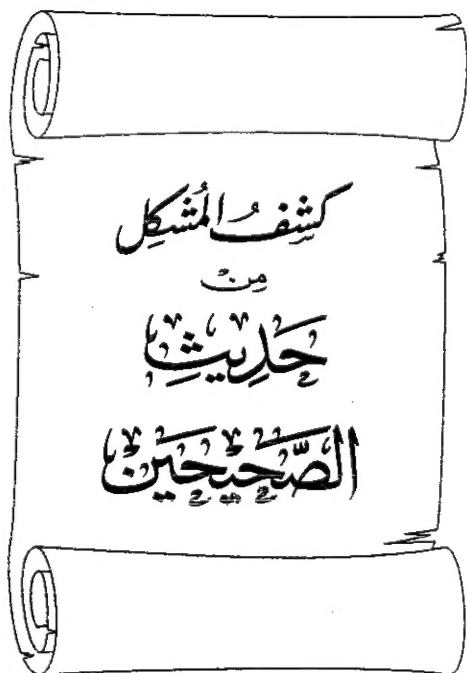 كشفُ المُشكِل
مِن
حَديثِ
الصَّحيحَين